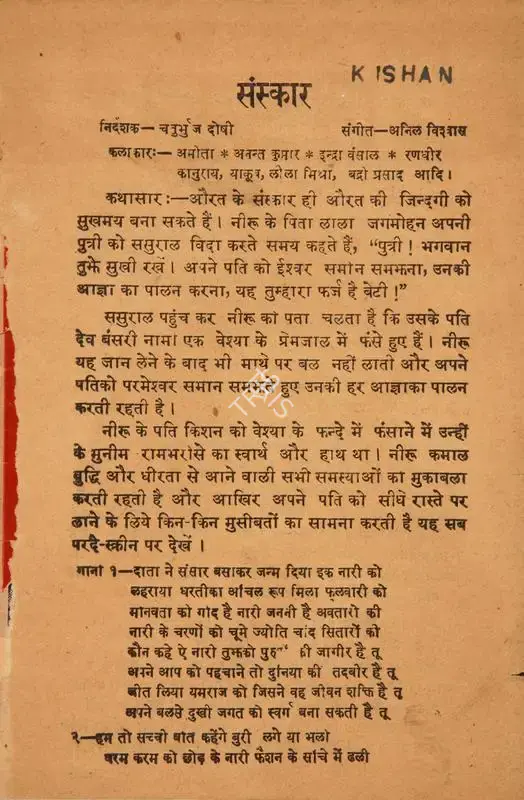 KISHAN
संस्कार
निर्देशक— चतुर्भुज दोषी संगीत—अनिल विश्वास
कलाकारः— अमीता * अनन्त कुमार * इन्द्रा बंसाल * रणधीर
कानुराय, याकूब, लीला मिश्रा, बद्री प्रसाद आदि।
कथासारः—औरत के संस्कार ही औरत की जिन्दगी को
सुखमय बना सकते हैं। नीरू के पिता लाला जगमोहन अपनी
पुत्री को ससुराल विदा करते समय कहते हैं, “पुत्री! भगवान
तुझे सुखी रखें। अपने पति को ईश्वर समान समझना, उनकी
आज्ञा का पालन करना, यह तुम्हारा फर्ज है बेटी!”
ससुराल पहुंच कर नीरू को पता चलता है कि उसके पति
देव बंसरी नामी एक वेश्या के प्रेमजाल में फंसे हुए हैं। नीरू
यह जान लेने के बाद भी माथे पर बल नहीं लाती और अपने
पतिको परमेश्वर समान समझते हुए उनकी हर आज्ञाका पालन
करती रहती है।
नीरू के पति किशन को वेश्या के फन्दे में फंसाने में उन्हीं
के मुनीम रामभरोसे का स्वार्थ और हाथ था। नीरू कमाल
बुद्धि और धीरता से आने वाली सभी समस्याओं का मुकाबला
करती रहती है और आखिर अपने पति को सीधे रास्ते पर
लाने के लिये किन-किन मुसीबतों का सामना करती है यह सब
परदे-स्क्रीन पर देखें।
गाना १—दाता ने संसार बसाकर जन्म दिया इक नारी को
लहराया धरतीका आंचल रूप मिला फुलवारी को
मानवता की गोद है नारी जननी है अवतारों की
नारी के चरणों को चूमे ज्योति चांद सितारों की
कौन कहे ऐ नारी तुझको की जागीर है तू
अपने आप को पहचाने तो दुनिया की तदबीर है तू
जीत लिया यमराज को जिसने वह जीवन शक्ति है तू
अपने बलसे दुखी जगत को स्वर्ग बना सकती है तू
२—हम तो सच्ची बात कहेंगे बुरी लगे या भली
धरम करम को छोड़ के नारी फैशन के सांचे में ढली